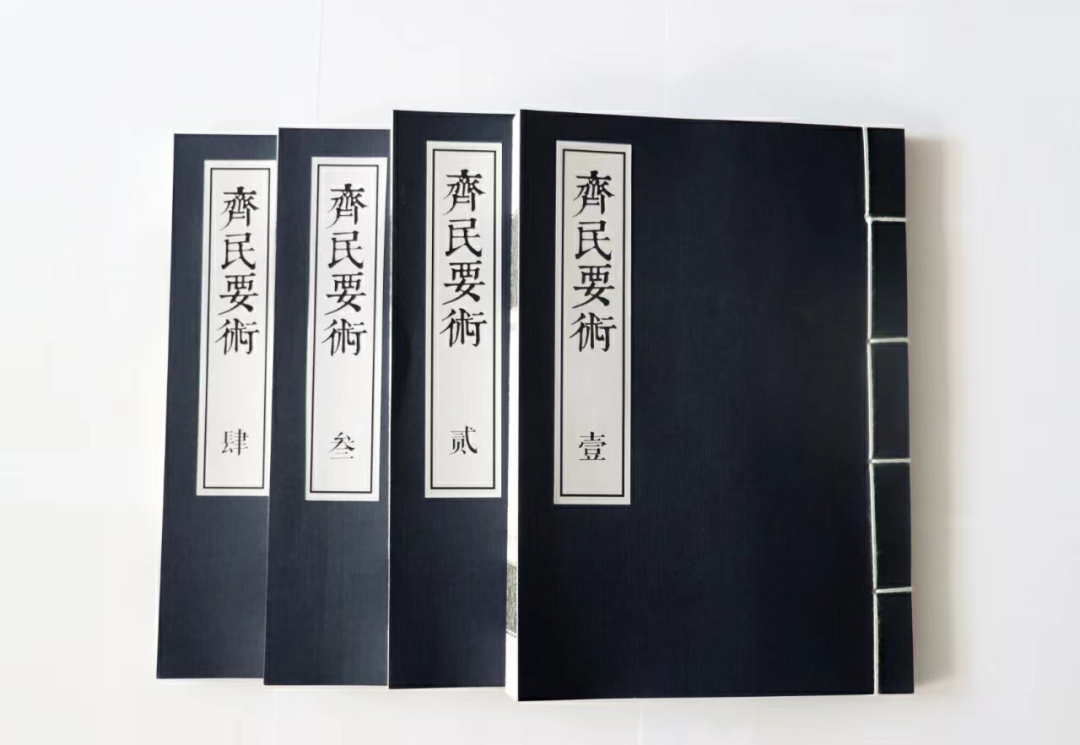 齊民要術 壹
齊民要術 贰
齊民要術 叁
齊民要術 肆